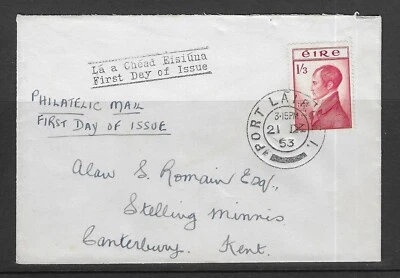 Lá a Chéad Eisiúna
First Day of Issue
ÉIRE
1/3
PORT LÁIRGE
3-15PM
21 IX
53
PHILATELIC MAIL
FIRST DAY OF ISSUE
Alan S. Romain Esq.,
Stelling Minnis
Canterbury. Kent.